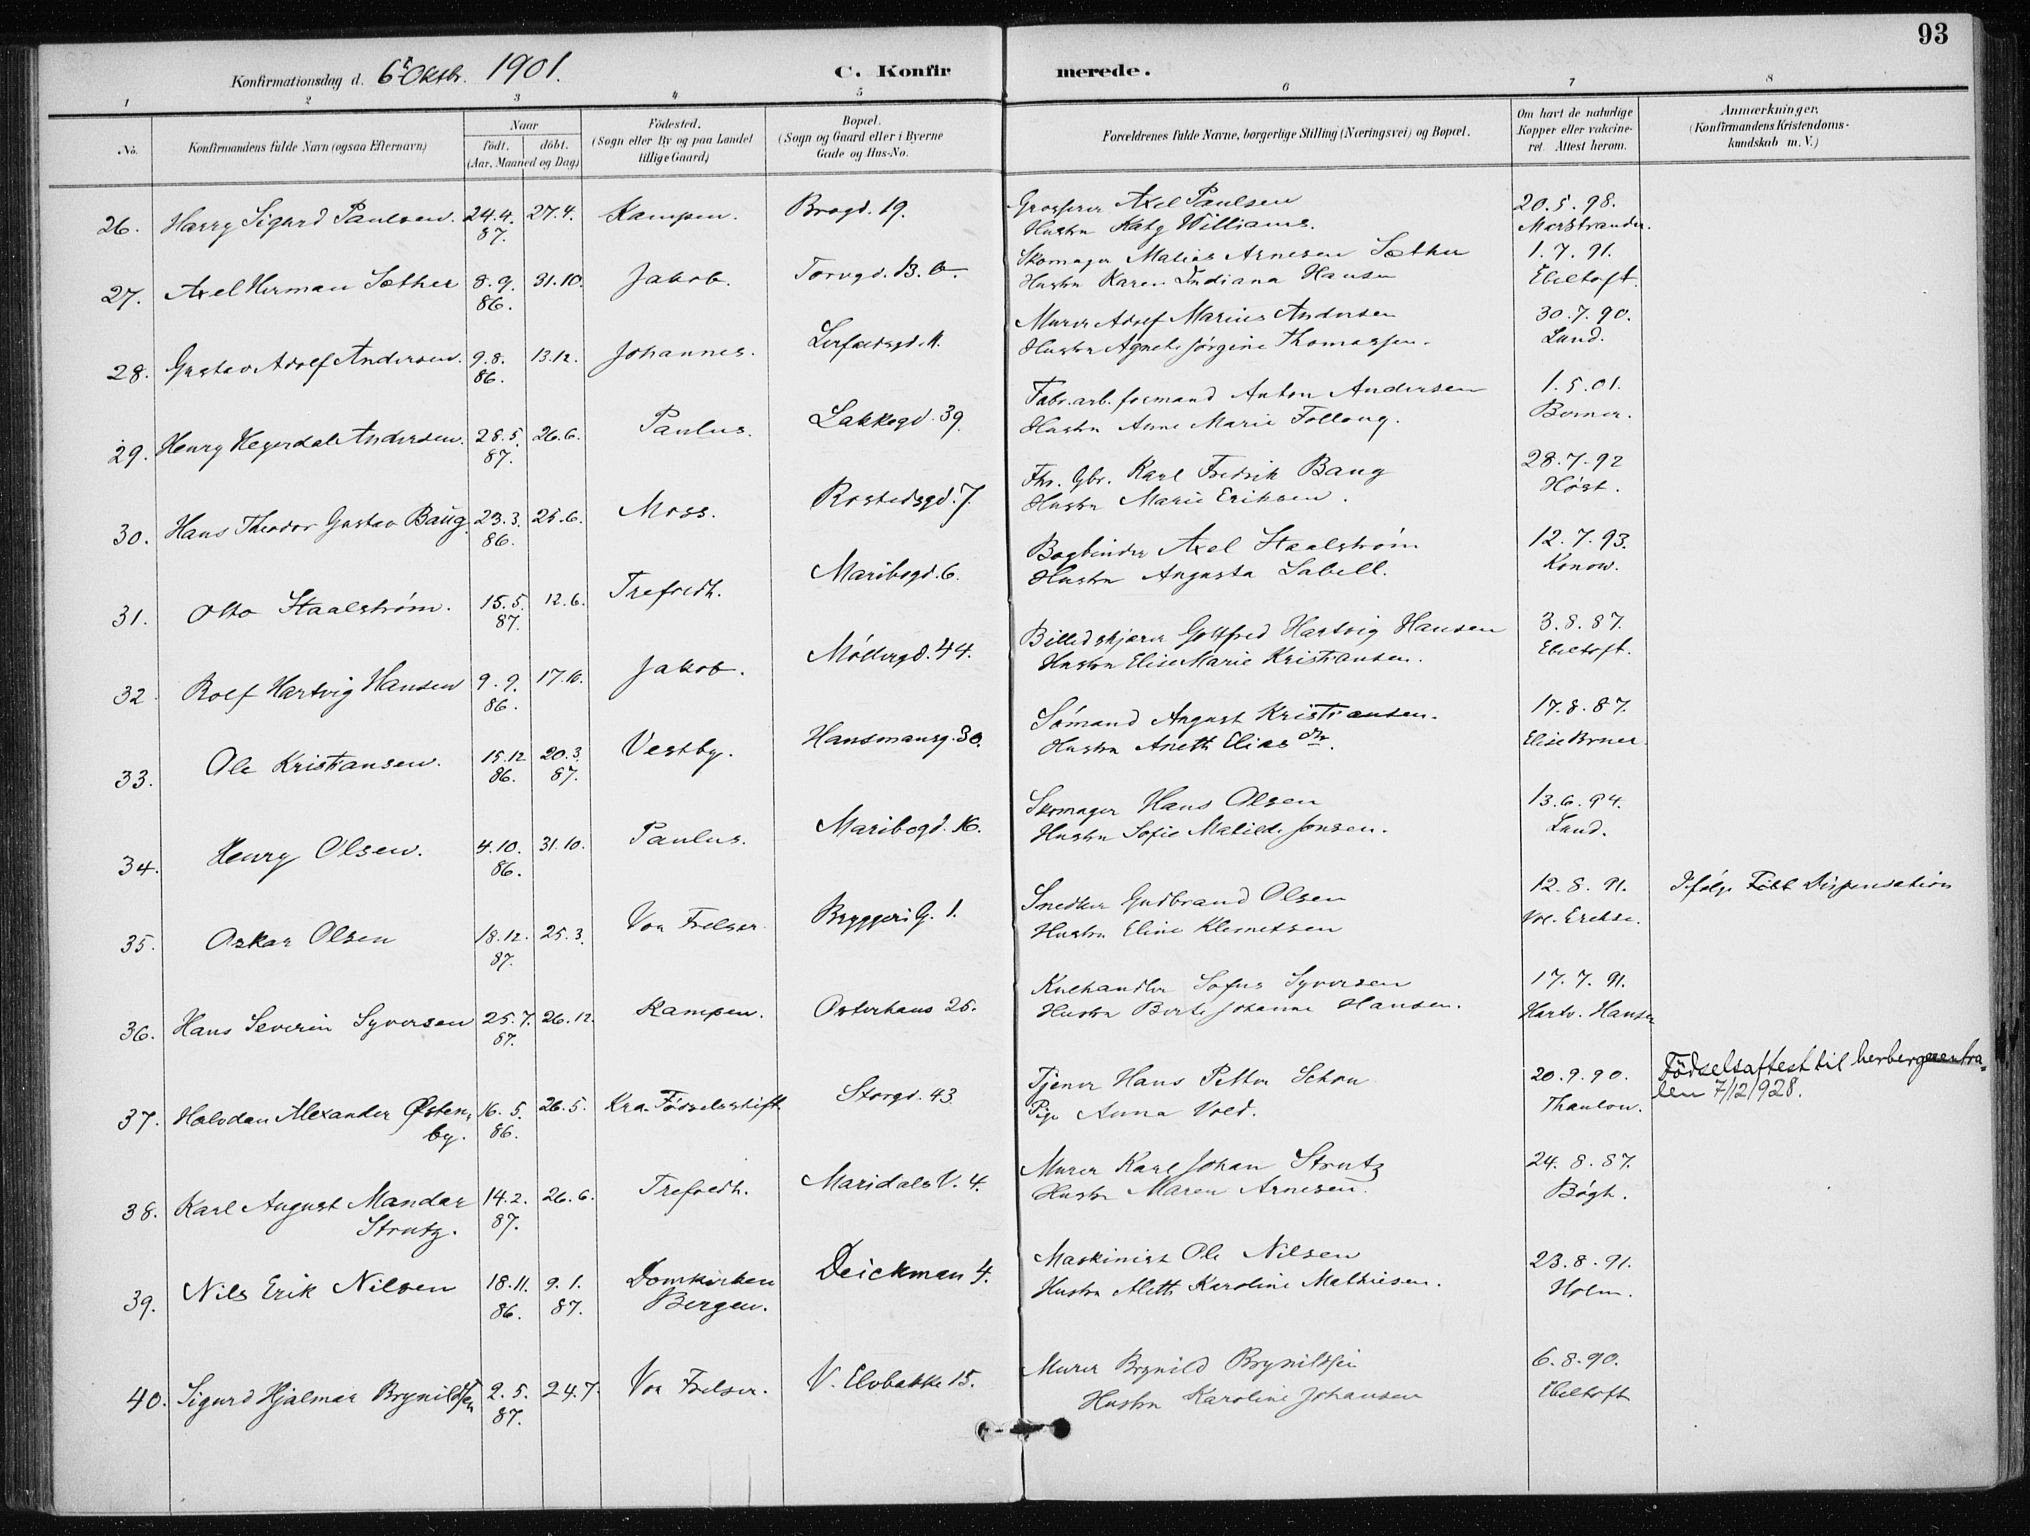 93
Konfirmationsdag d. 6te Oktbr. 1901.
C. Konfirmerede.
1 2 3 4 5 6 7 8
No.
Konfirmandens fulde Navn (ogsaa Efternavn)
Naar
født. døbt.
(Aar, Maaned og Dag)
Fødested.
(Sogn eller By og paa Landet
tillige Gaard)
Bopæl.
(Sogn og Gaard eller i Byerne
Gade og Hus-No.
Forældrenes fulde Navne, borgerlige Stilling (Næringsvei) og Bopæl.
Om havt de naturlige
Kopper eller vakcine-
ret. Attest herom.
Anmærkninger.
(Konfirmandens Kristendoms-
kundskab m. V.)
26. Harry Sigurd Paulsen. 24.4. 27.4. Kampen. Brogd. 19. Grosserer Axel Paulsen 20.5.98.
87. Hustru Katy Williams. Marstrander.
27. Axel Herman Sæther 8.9. 31.10. Jakob. Torvgd. 13. b. Skomager Matias Arnesen Sæther 1.7.91.
86. Hustru Karen Indiana Hansen Ebeltoft.
28. Gustav Adolf Andersen. 9.8. 13.12. Johannes. Murer Adolf Marius Andersen 30.7.90.
86. Hustru Agnete Jørgine Thomassen. Lund.
29. Henry Hegerdal Andersen. 28.5. 26.6. Paulus. Lakkegd. 39. Fabr.arb. formand Anton Andersen 1.5.01.
87. Hustru Anne Marie Follaug. Borner.
30. Hans Theodor Gustav Baug. 23.3. 25.6. Moss. Rostedsgd. 7. Fhv. Gbr. Karl Fredrik Baug 28.7.92
86. Hustru Marie Eriksen. Høst.
31. Otto Staalstrøm. 15.5. 12.6. Trefoldh. Maribogd. 6. Bogbinder Axel Staalstrøm 12.7.93.
87. Hustru Augusta Labell. Konow.
32. Rolf Hartvig Hansen 9.9. 17.10. Jakob. Møllergd. 44. Billedskjærer Gottfred Hartvig Hansen 3.8.87.
86. Hustru Elise Marie Kristiansen. Ebeltoft.
33. Ole Kristiansen. 15.12 20.3. Vestby. Hausmansg. 30. Sømand August Kristiansen. 17.8.87.
86. 87. Hustru Aneth Elias dtr. Elise Brner.
34. Henry Olsen. 4.10. 31.10. Paulus. Maribogd. 16. Skomager Hans Olsen 13.6.94.
86. Hustru Sofie Matilde Jonsen. Lund.
35. Oskar Olsen 18.12. 25.3. Vor Frelser. Bryggeri G. 1. Snedker Gudbrand Olsen 12.8.91. Ifølge Dispensation
87. Hustru Eline Klemetsen
36. Hans Severin Syversen 25.7. 26.12. Kampen. Osterhaus 25. Kulhandler Sofus Syversen 17.7.91.
87. Hustru Berte Johanne Hansen. Hartv. Hansen
37. Halvdan Alexander Østen- 16.5. 26.5. Kra. Fødselsstift. Storgd. 43 Tjener Hans Petter Schou 20.9.90. Fødselsattest til herbergcentra-
by. 86. Pige Anna Vold. Thaulow. len 7/12/928.
38. Karl August Mandar 14.2. 26.6. Trefoldh. Maridals V. 4. Murer Karl Johan Strutz 24.8.87.
Strutz. 87. Hustru Maren Arnesen. Bøgh.
39. Nils Erik Nilsen 18.11. 9.1. Domkirken Deickman 4. Maskinist Ole Nilsen 23.8.91.
86. 87. Bergen. Hustru Aleth Karoline Mathiesen. Holm.
40. Sigurd Hjalmar Brynildsen 2.5. 24.7. Vor Frelser. V. Elvbakke 15. Murer Brynild Brynildsen 6.8.90.
87. Hustru Karoline Johansen Ebeltoft